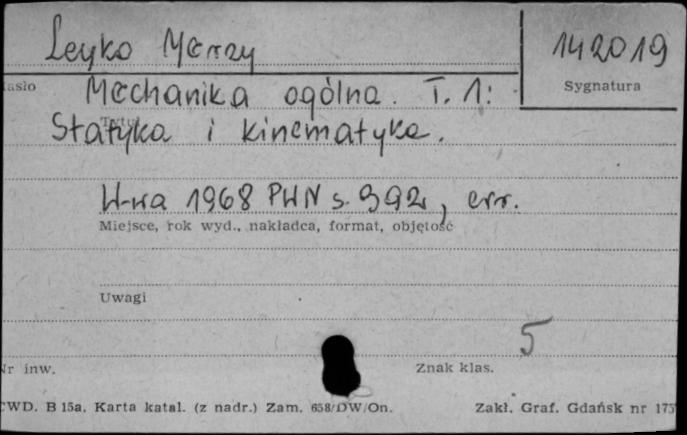 Leyko Jerzy 142019
asło Sygnatura
Mechanika ogólna. T. 1:
Tytuł
Statyka i kinematyka.
W-wa 1968 PWN s. 392, err.
Miejsce, rok wyd., nakładca, format, objętość
Uwagi
5
Nr inw. Znak klas.
CWD. B 15a. Karta katal. (z nadr.) Zam. 658/DW/On. Zakł. Graf. Gdańsk nr 175